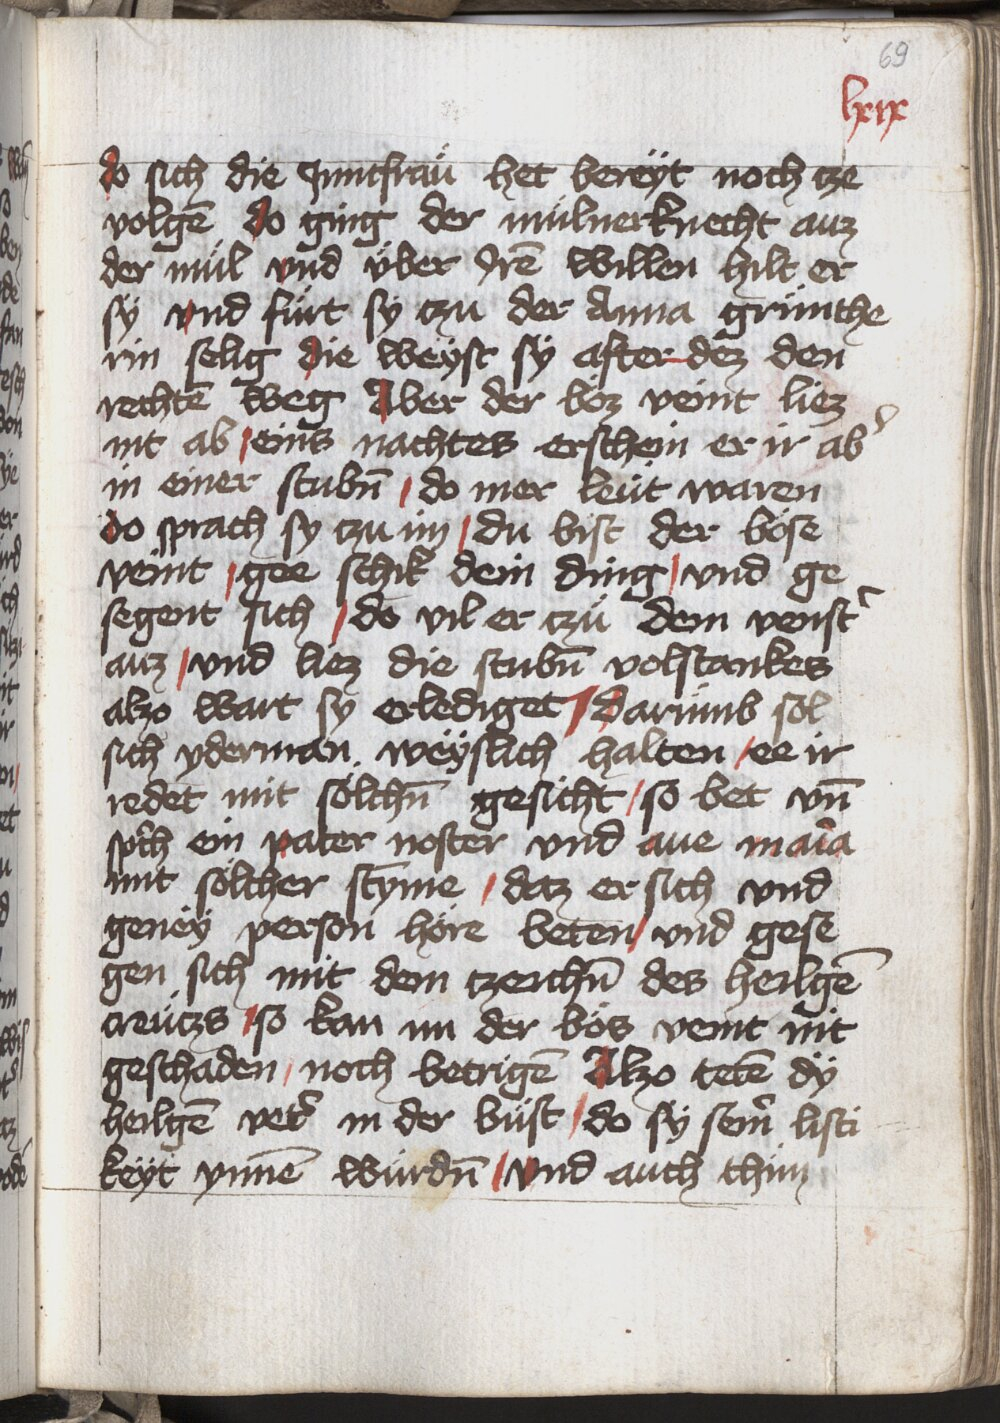 69
lxix
do sich die Junckfraw̆ het bereÿt noch tze
volgē do ging der mülnerknecht auz
der mül vnd über Jrē willen hilt er
sÿ vnd fürt sy tzu der Anna grünthe
rin selig die weyst sÿ after dez den
rechtē weg Aber der böz veint liez
nit ab / eins nachtes erschein er ir ab᾿
in einer stubn̄ / do mer leüt waren
do sprach sy tzu im / du bist der böse
veint / gee schik dein ding / vnd ge
segent sich / do vil er tzü dem venst᾿
auz / vnd liez die stubn̄ volstankes
alzo wart sy erlediget / Darümb sol
sich yderman weÿslich halten / ee ir
redet mit sölchn̄ gesicht / so bet vn̄
sp̄ch ein pater noster vnd aue maīa
mit sölcher stȳme / datz er sich vnd
geneÿ person höre beten / vnd gese
gen sich mit dem tzeichn̄ des heilgē
creützs / so kan im der bös veint nit
geschaden / noch betrigē Alzo tetē dÿ
heilgē vet᾿ in der wüst / do sy sein᾿ listi
keÿt ynnē würdn̄ / vnd auch